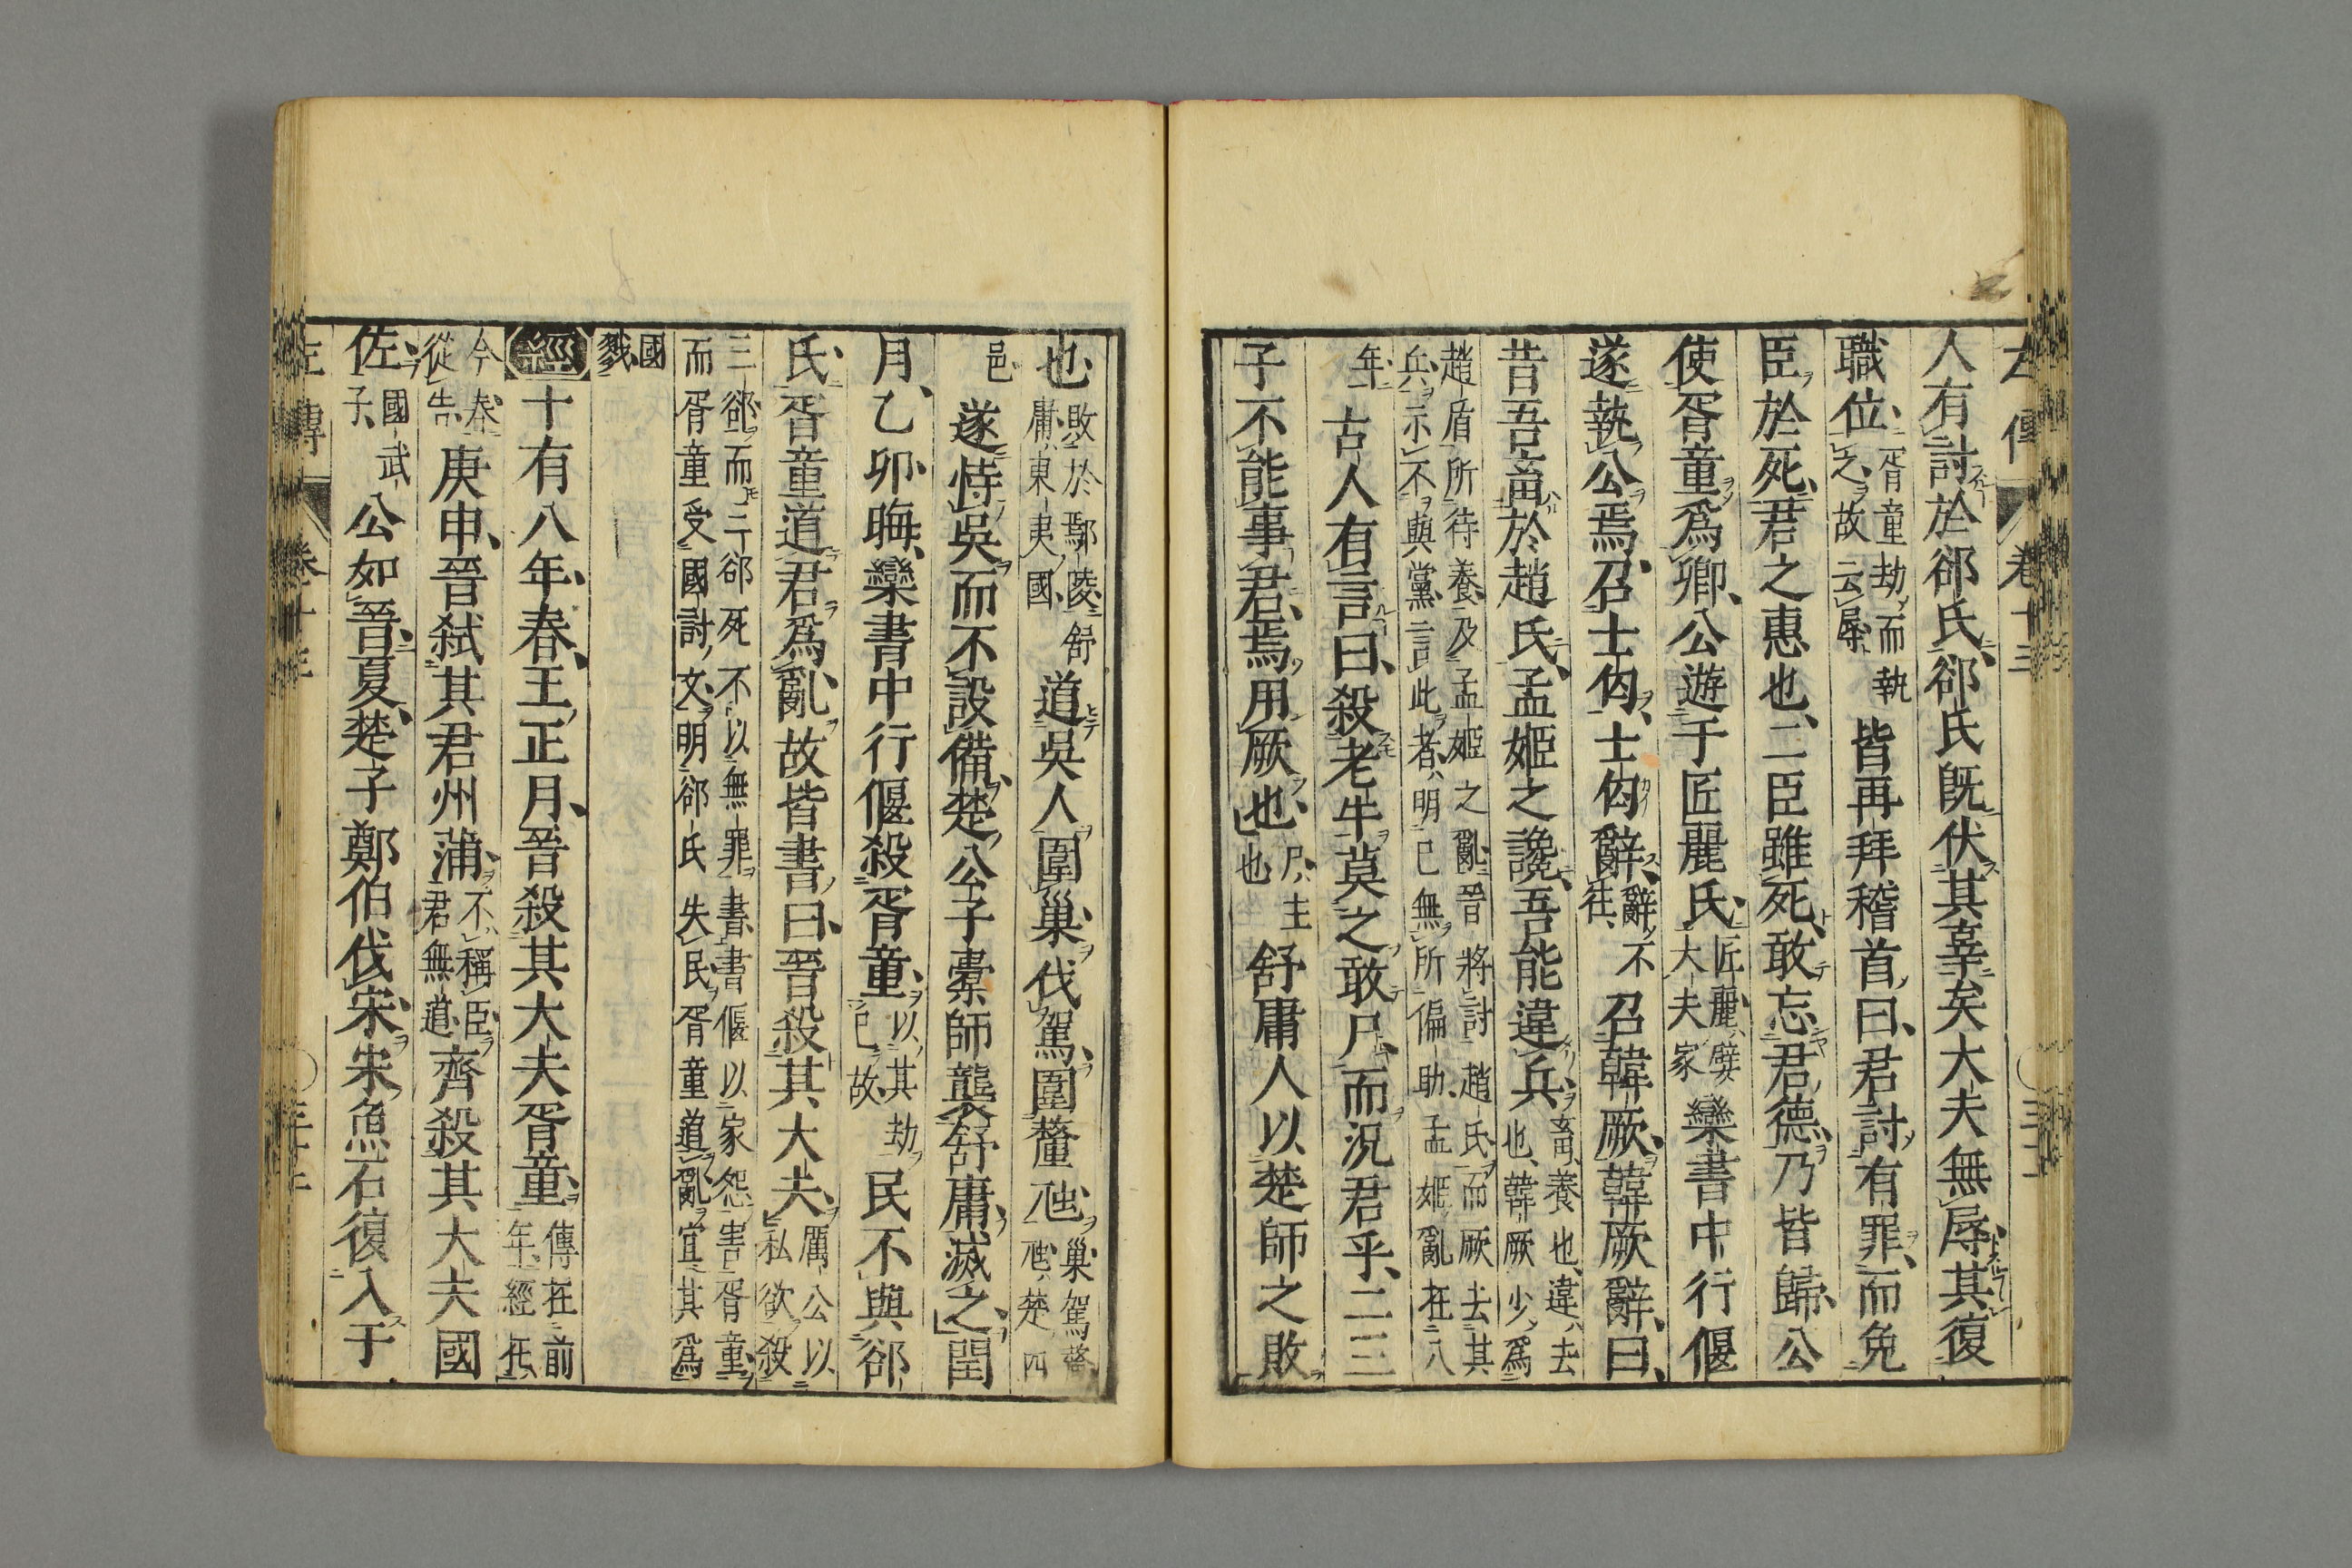 左傳 卷十三 三十一
人有討於郤氏郤氏既伏其辜矣大夫無辱其復
職位胥童劫而執之故云辱皆再拜稽首曰君討有罪而免
臣於死君之惠也二臣雖死敢忘君德乃皆歸公
使胥童爲卿公遊于匠麗氏匠麗嬖大夫家欒書中行偃
遂執公焉召士匄士匄辭辭不往召韓厥韓厥辭曰
昔吾畜於趙氏孟姬之讒吾能違兵畜養也違去也韓厥少爲
趙盾所待養及孟姬之亂晉將討趙氏而厥去其兵示不與黨言此者明己無所偏助孟姬亂在八
年古人有言曰殺老牛莫之敢尸而況君乎二三
子不能事君焉用厥也尸主也舒庸人以楚師之敗
也敗於鄢陵舒庸東夷國道吳人圍巢伐駕圍釐虺巢駕釐虺楚四
邑遂恃吳而不設備楚公子橐師襲舒庸滅之閏
月乙卯晦欒書中行偃殺胥童以其劫己故民不與郤
氏胥童道君爲亂故皆書曰晉殺其大夫厲公以私欲殺
三郤而三郤死不以無罪書書偃以家怨害胥童而胥童受國討文明郤氏失民胥童道亂宜其爲
國戮
經十有八年春王正月晉殺其大夫胥童傳在前年經在
今春從告庚申晉弑其君州蒲不稱臣君無道齊殺其大夫國
佐國武子公如晉夏楚子鄭伯伐宋宋魚石復入于
左傳 卷十三